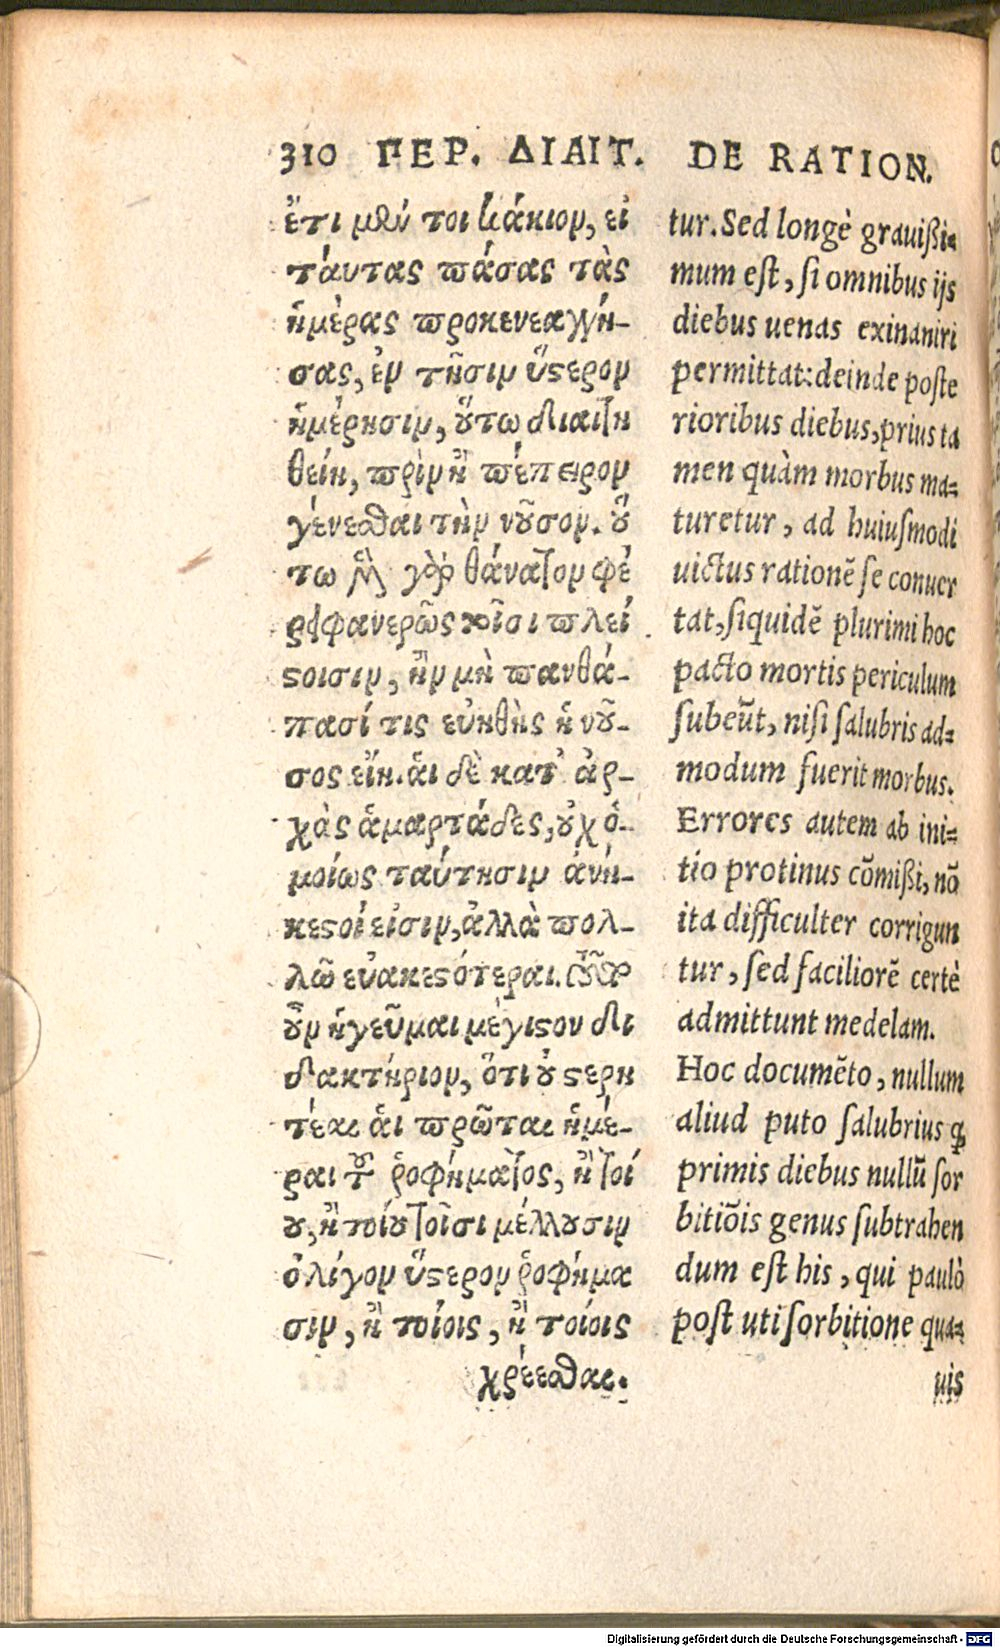 310 ΠΕΡ. ΔΙΑΙΤ. DE RATION.
ἔτι μὲν τοι κάκιον, εἰ
ταύτας πάσας τὰς
ἡμέρας προκενεαγγή-
σας, ἐν τῇσιν ὕστερον
ἡμέρῃσιν, οὕτω διαιτη
θείη, πρὶν ἢ πέπειρον
γένεσθαι τὴν νοῦσον. οὕ
τω μὴν γὰρ θάνατον φέ
ρει φανερῶς τοῖσι πλεί
στοισιν, ἢν μὴ πανθά-
πασί τις εὐηθὴς ἡ νοῦ-
σος εἴη. αἱ δὲ κατ' ἀρ-
χὰς ἁμαρτάδες, οὐχ ὁ-
μοίως ταύτῃσιν ἀνή-
κεστοί εἰσιν, ἀλλὰ πολ-
λῷ εὐακεστότεραι.
οὖν ἡγεῦμαι μέγιστον δι
δακτήριον, ὅτι οὐ στερη
τέαι αἱ πρῶται ἡμέ-
ραι τοῦ ῥοφήματος, ἢ τοί
ου, ἢ τοίου τοῖσι μέλλουσιν
ὀλίγον ὕστερον ῥοφήμα
σιν, ἢ τοίοις, ἢ τοίοις
χρέεσθαι.
tur. Sed longè grauißi=
mum est, si omnibus ijs
diebus uenas exinaniri
permittat: deinde poste
rioribus diebus, prius ta
men quàm morbus ma=
turetur, ad huiusmodi
uictus rationẽ se conuer
tat, siquidẽ plurimi hoc
pacto mortis periculum
subeũt, nisi salubris ad=
modum fuerit morbus.
Errores autem ab ini=
tio protinus cõmißi, nõ
ita difficulter corrigun
tur, sed faciliorẽ certè
admittunt medelam.
Hoc documẽto, nullum
aliud puto salubrius ꝗ̃
primis diebus nullũ sor
bitiõis genus subtrahen
dum est his, qui paulò
post uti sorbitione qua=
uis
Digitalisierung gefördert durch die Deutsche Forschungsgemeinschaft - DFG